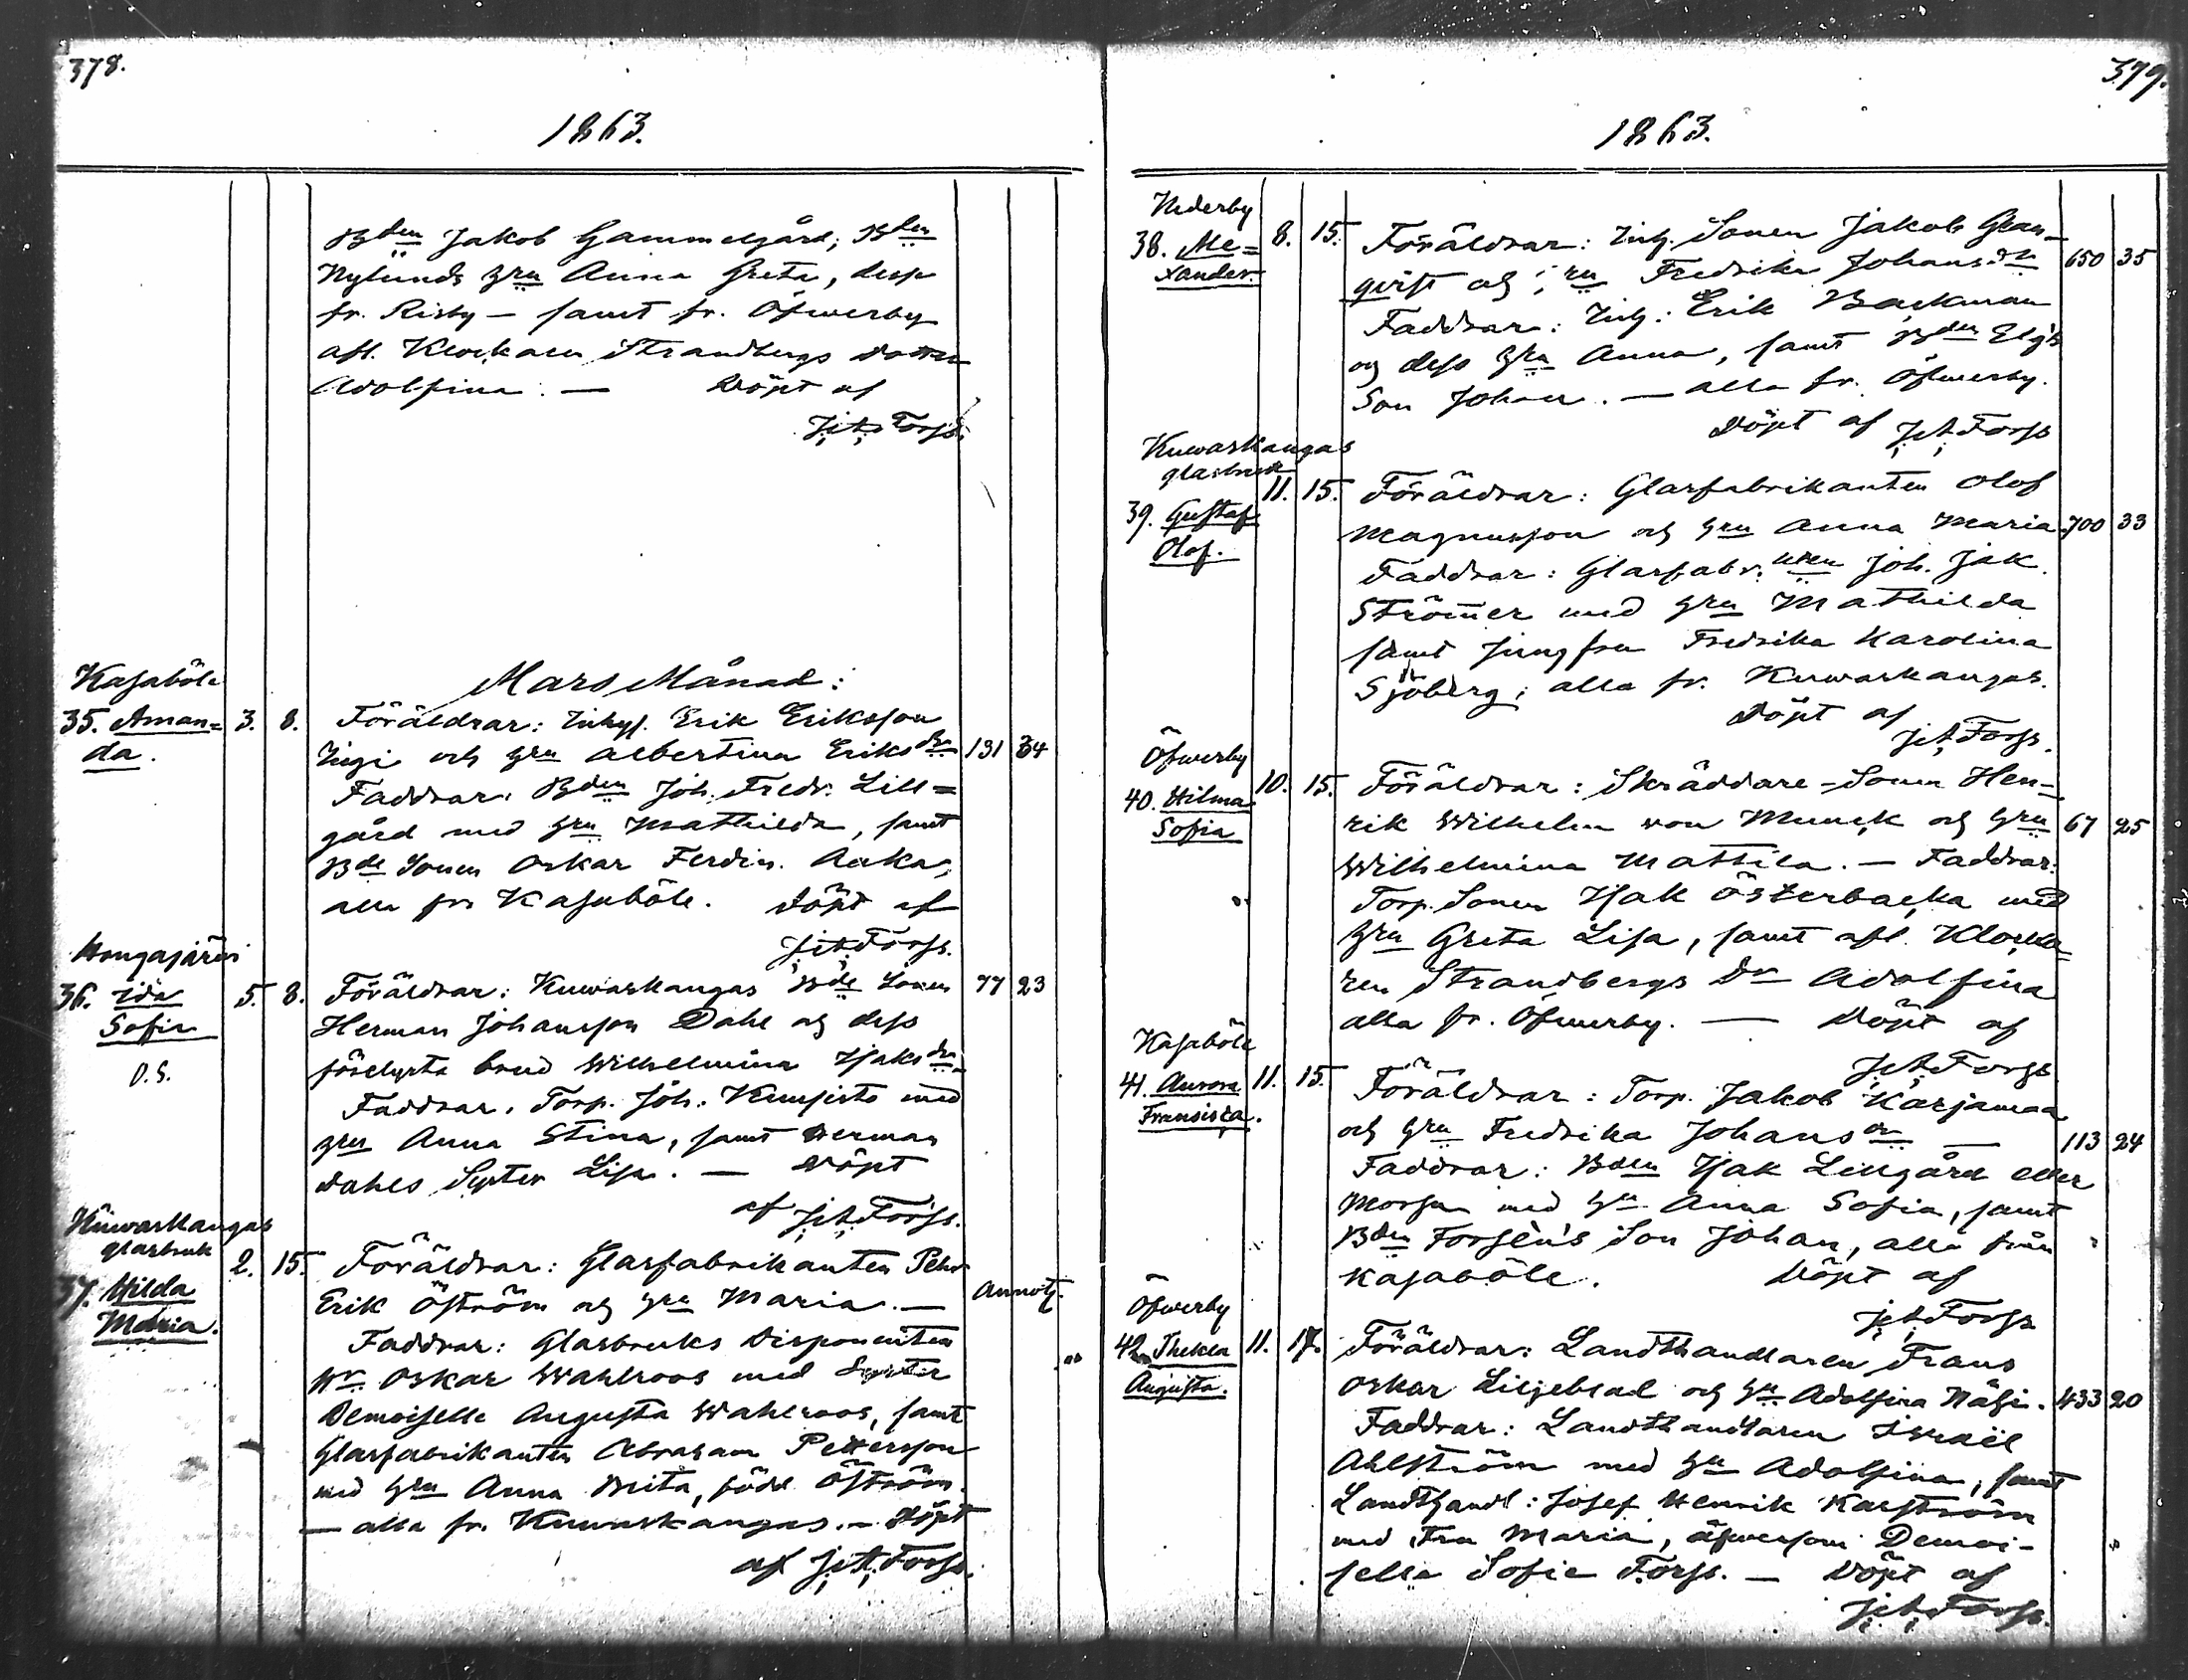 378.
1863.
Bden Jakob Gammelgård; Bden
Nylunds hru Anna Greta, desse
fr. Risby — samt fr. Öfwerby
afl. Klockaren Strandbergs dotter
Adolfina. — Döpt af
J. A. Forss.
Mars Månad:
Kasaböle
35. Aman=
da.
3. 8.
Föräldrar: Inhys. Erik Eriksson
Ingi och hru Albertina Eriksdr
131 34
Faddrar: Bden Joh. Fredr. Lill=
gård med hru Mathilda, samt
Bde Sonen Oskar Ferdin.
alla fr. Kasaböle. Döpt af
J. A. Forss.
Hongajärvi
36. Ida
Sofia
O.S.
5. 8.
Föräldrar: Kuwaskangas Bde Sonen
77 23
Herman Johansson Dahl och dess
förelysta brud Wilhelmina Isaksdr.
Faddrar: Torp. Joh. med
hru Anna Stina, samt Herman
Dahls Syster Lisa. — Döpt
af J. A. Forss.
Kuwaskangas
glasbruk
37. Hilda
Maria.
2. 15.
Föräldrar: Glasfabrikanten Pehr
Erik Öström och hru Maria. —
Annot.
Faddrar: Glasbruks Disponenten
Hr Oskar Wahlroos med Syster
Demoiselle Augusta Wahlroos, samt
Glasfabrikanten Abraham Pettersson
med hru Anna Brita, född Öström.
— alla fr. Kuwaskangas. — Döpt
af J. A. Forss.
379.
1863.
Nederby
38. Ale=
xander.
8. 15.
Föräldrar: Inh. Sonen Jakob Gran-
qvist och hru Fredrika Johansdr
650 35
Faddrar: Inh: Erik Backman
och dess hru Anna, samt Bden
Son Johan. — alla fr. Öfwerby.
Döpt af J. A. Forss
Kuwaskangas
glasbruk
39. Gustaf
Olof.
11. 15.
Föräldrar: Glasfabrikanten Olof
Magnusson och hru Anna Maria
700 33
Faddrar: Glasfabr. Joh. Jak.
Strömer med hru Mathilda
samt Jungfru Fredrika Karolina
Sjöberg; alla fr. Kuwaskangas.
Döpt af
J. A. Forss.
Öfwerby
40. Hilma
Sofia
10. 15.
Föräldrar: Skräddare-Sonen Hen-
rik Wilhelm von Munck och hru
67 25
Wilhelmina Mattila. — Faddrar:
Torp. Sonen Isak Österbacka med
hru Greta Lisa, samt afl. Klocka
ren Strandbergs Dr Adolfina
alla fr. Öfwerby. — Döpt af
J. A. Forss
Kasaböle
41. Aurora
Fransiska.
11. 15.
Föräldrar: Torp. Jakob Karjamaa
och hru Fredrika Johansdr —
113 24
Faddrar: Bden Isak Lillgård eller
med hru Anna Sofia, samt
Bden Forsén's Son Johan, alla från
Kasaböle. Döpt af
J. A. Forss
Öfwerby
42. Thekla
Augusta.
11. 17.
Föräldrar: Landthandlaren Frans
Oskar Liljeblad och hru Adolfina Näsi.
433 20
Faddrar: Landthandlaren Israël
Ahlström med hru Adolfina, samt
Landthandl: Josef Henrik Karström
med Fru Maria, äfwensom Demoi-
selle Sofie Forss. — Döpt af
J. A. Forss.